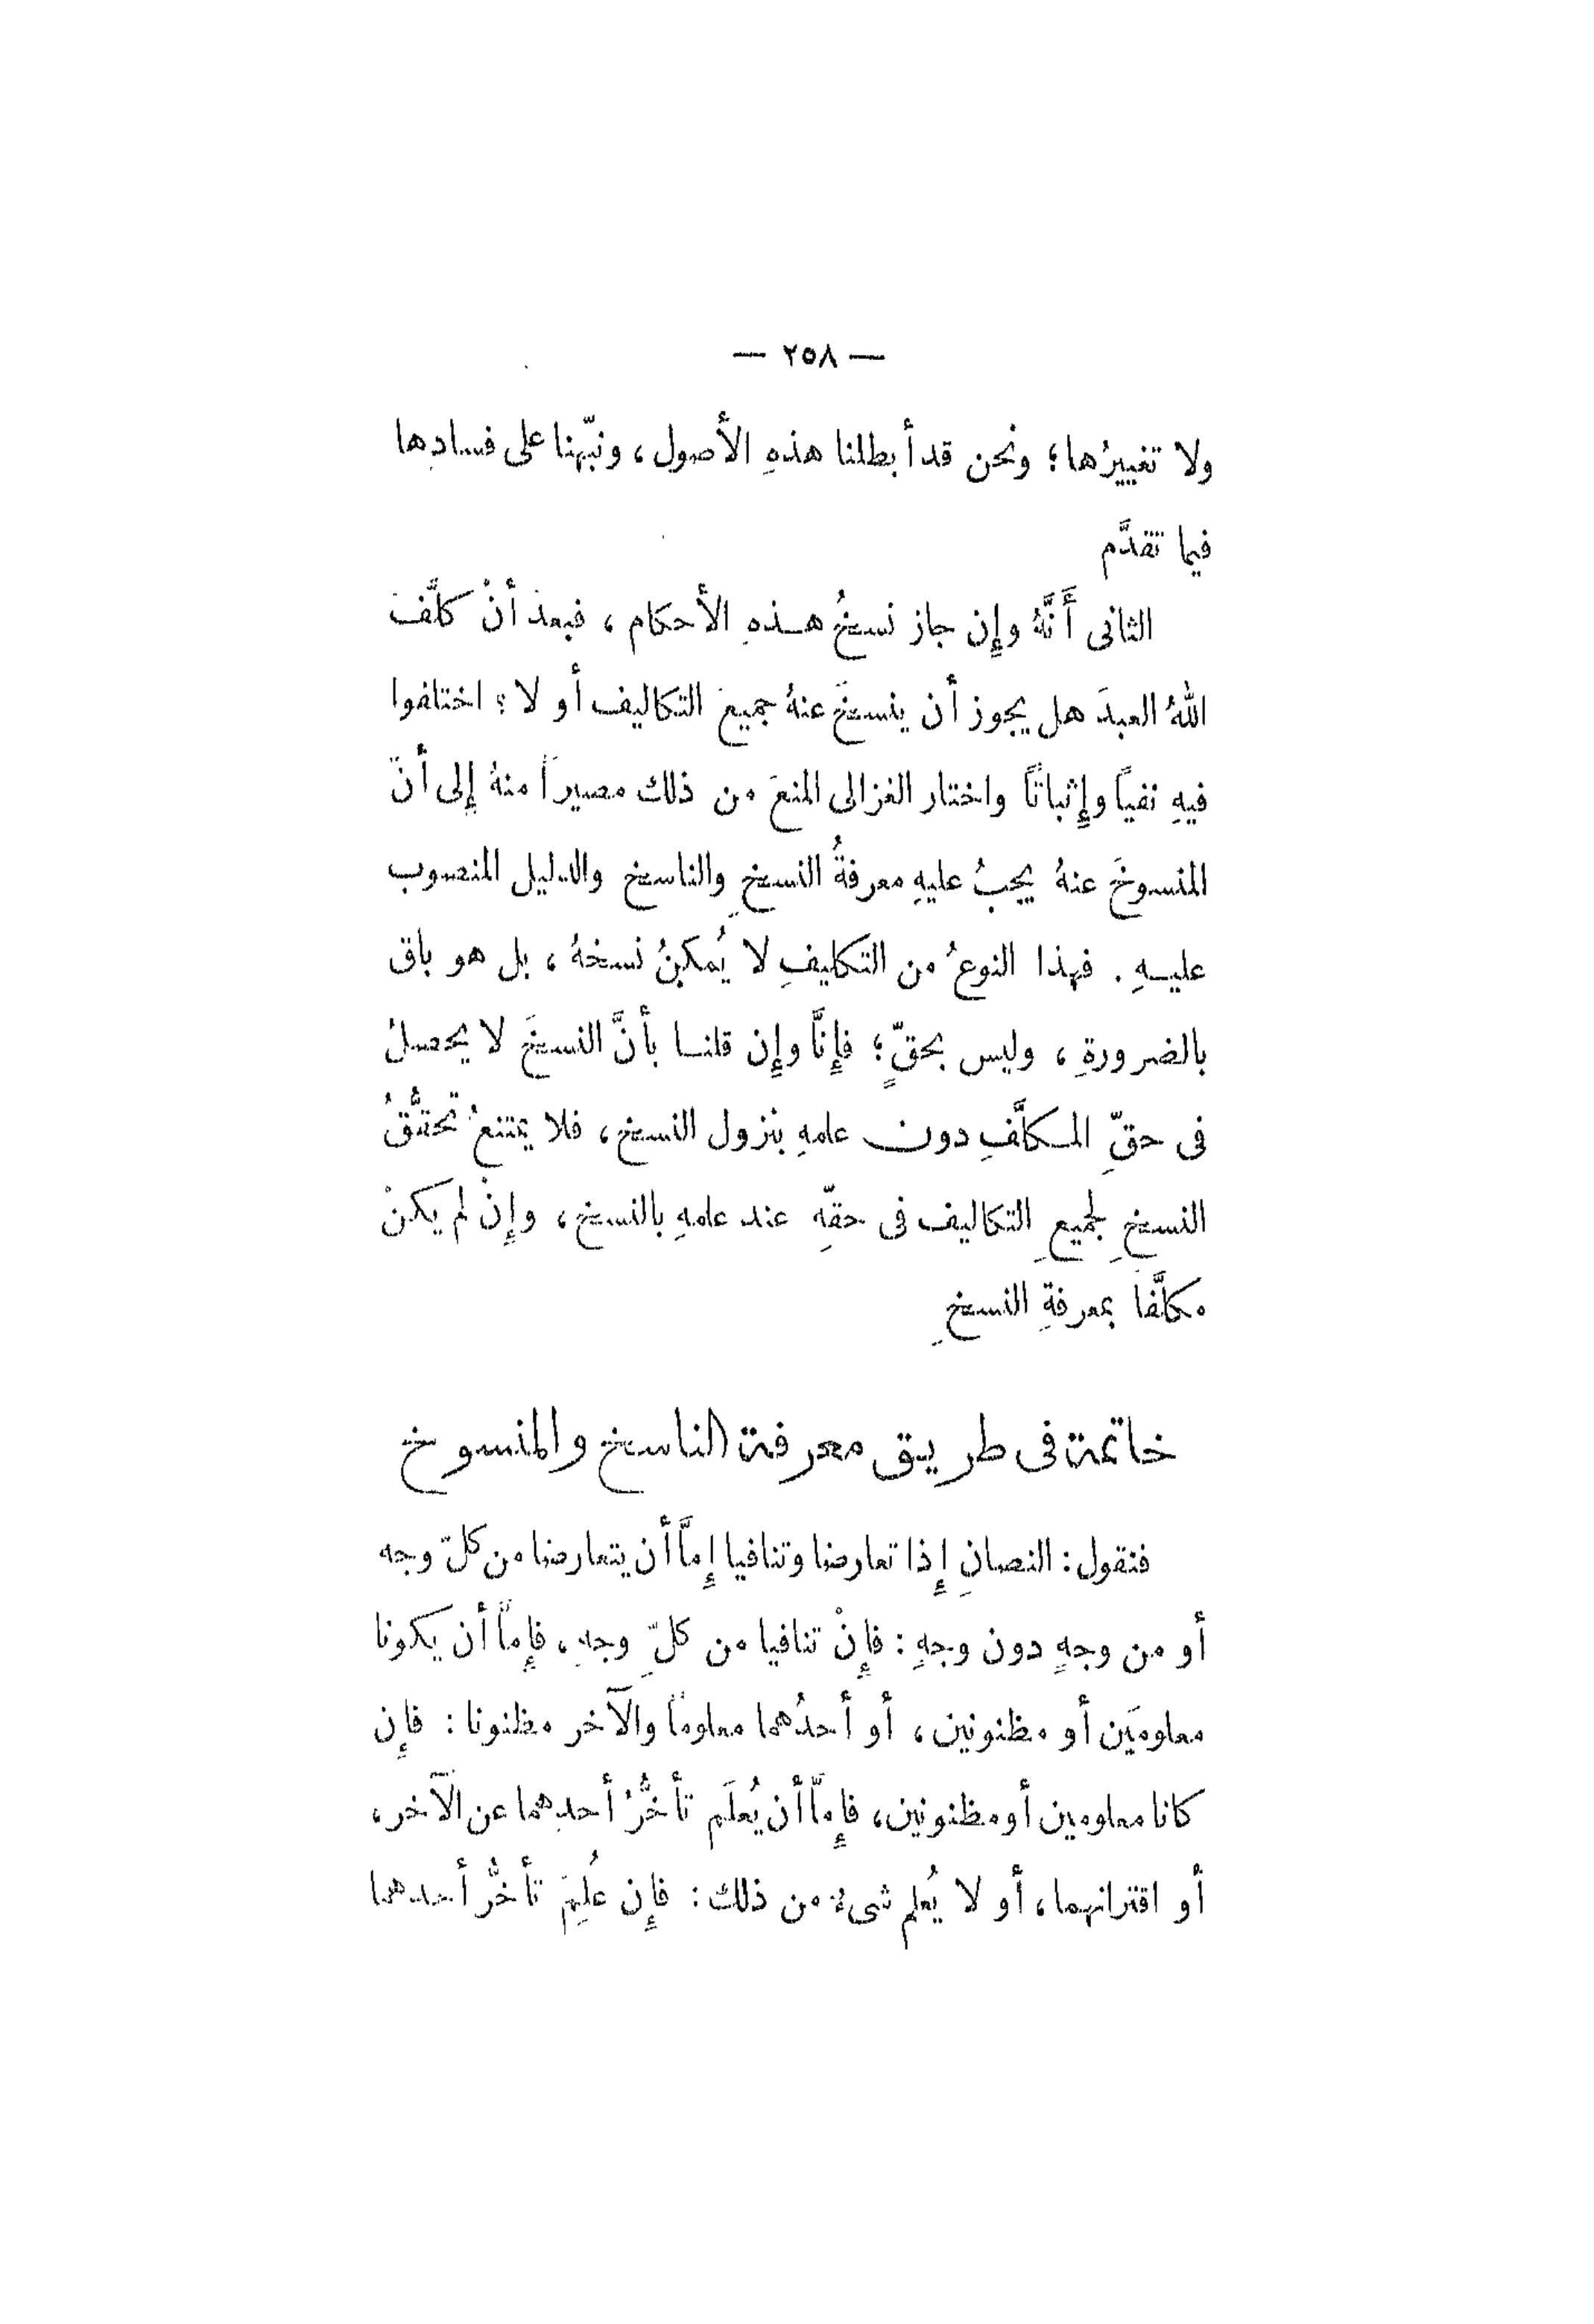 — ٢٥٨ —
ولا تغييرُها؛ ونحن قد أبطلنا هذهِ الأصول، ونبّهنا على فسادِها
فيما تقدَّم
الثانى أَنَّهُ وإِن جاز نسخُ هـذهِ الأحكام، فبعدَ أنْ كلَّفَ
اللهُ العبدَ هل يجوز أن ينسخَ عنهُ جميعَ التكاليف أو لا؛ اختلفوا
فيهِ نفياً وإِثباتاً واختار الغزالى المنعَ من ذلك مصيراً منهُ إِلى أنّ
المنسوخَ عنهُ يجبُ عليهِ معرفةُ النسخِ والناسخ والدليل المنصوب
عليـهِ. فهذا النوعُ من التكليفِ لا يُمكنُ نسخهُ، بل هو باق
بالضرورةِ، وليس بحقّ؛ فإِنَّا وإِن قلنـا بأنَّ النسخَ لا يحصلُ
فى حقّ المـكلَّفِ دون علمهِ بنزول النسخ، فلا يمتنعُ تحقُّقُ
النسخِ لجميعِ التكاليف فى حقّهِ عند علمهِ بالنسخ، وإِنْ لم يكنْ
مكلَّفاً بمعرفةِ النسخِ
خاتمة فى طريق معرفة الناسخ والمنسوخ
فنقول: النصانِ إِذا تعارضا وتنافيا إِمَّا أن يتعارضا من كلّ وجه
أو من وجهٍ دون وجهٍ: فإِنْ تنافيا من كلّ وجهٍ، فإِمّا أن يكونا
معلومَين أو مظنونين، أو أحدُهما معلوماً والآخر مظنونا: فإِن
كانا معلومين أو مظنونين، فإِمَّا أن يُعلَم تأخُّرُ أحدِهما عن الآخر،
أو اقترانهما، أو لا يُعلم شىءٌ من ذلك: فإِن عُلِمَ تأخُّر أحدهما